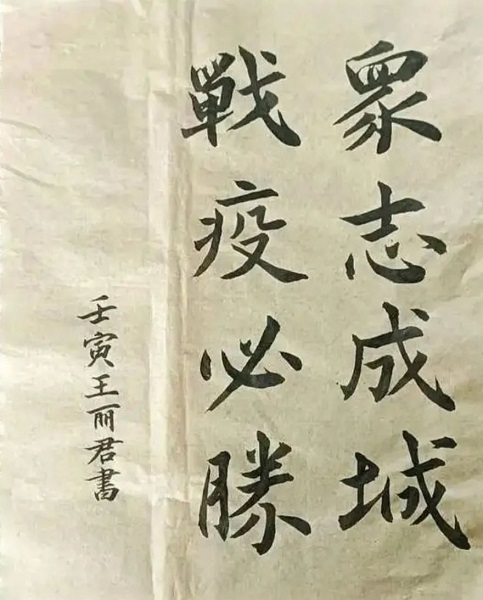 眾志成城
戰疫必勝
壬寅王丽君書